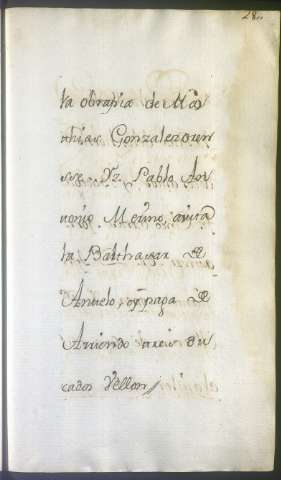 28..
ta obrapia de Ma
thias Gonzalez
se. Dz. Pablo An
tonio Merino,
ta Balthasar de
Anuelo, q̃ paga de
Arriendo seis Du
cados Vellon